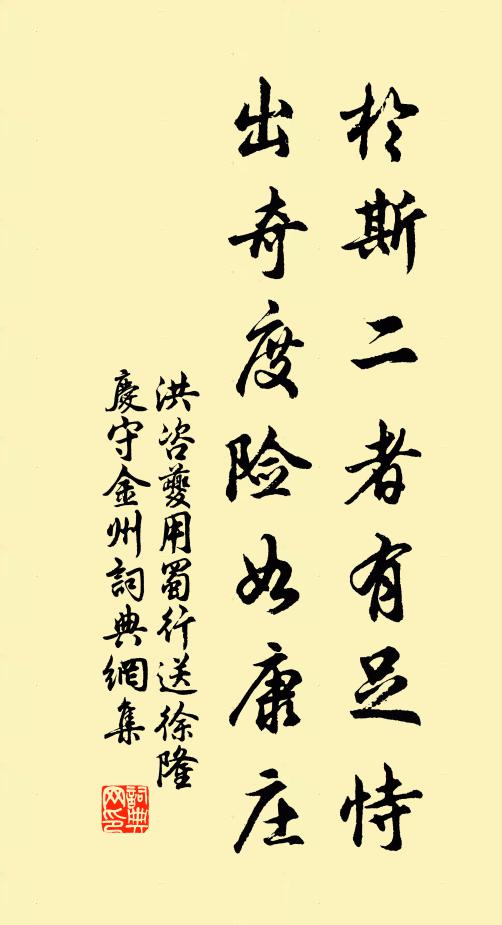 於斯二者有足恃
出奇度险如康庄
洪咨夔用蜀行送徐隆
慶守金州詞典網集
詞典网印